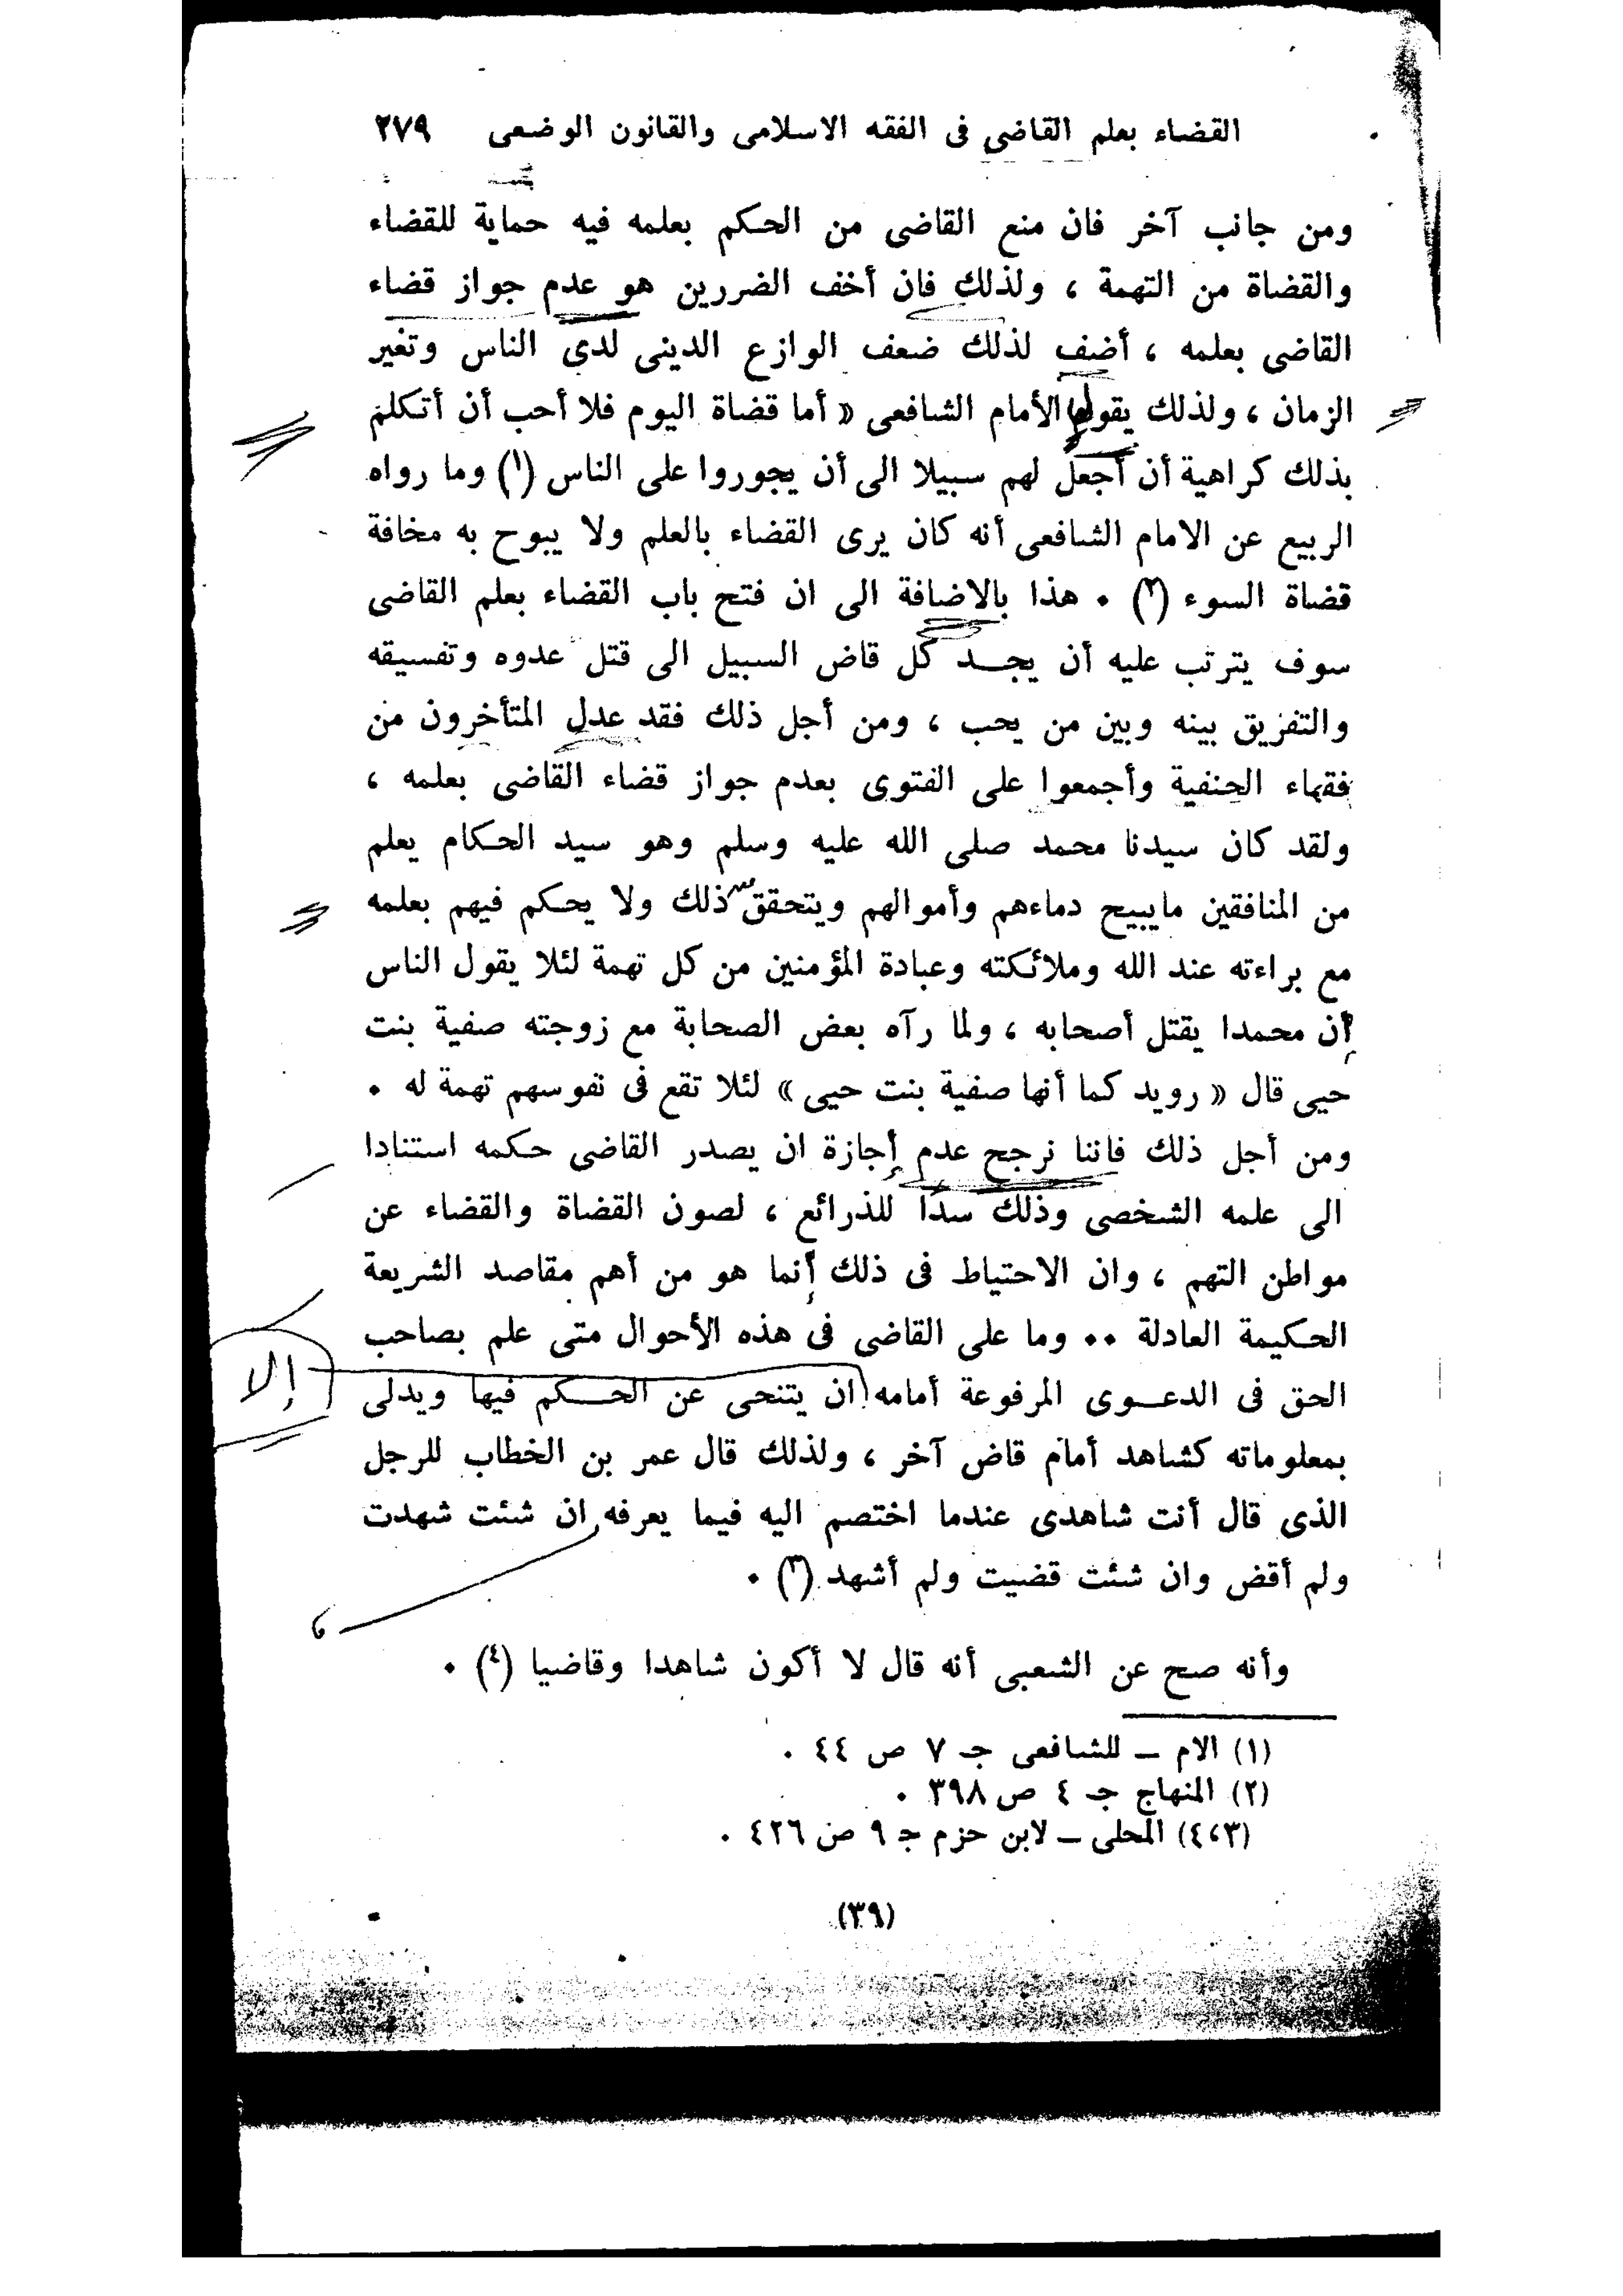 القضاء بعلم القاضى فى الفقه الاسلامى والقانون الوضعى ٢٧٩
ومن جانب آخر فان منع القاضى من الحكم بعلمه فيه حماية للقضاء
والقضاة من التهمة ، ولذلك فان أخف الضررين هو عدم جواز قضاء
القاضى بعلمه ، أضف لذلك ضعف الوازع الدينى لدى الناس وتغير
الزمان ، ولذلك يقول الأمام الشافعى « أما قضاة اليوم فلا أحب أن أتكلم
بذلك كراهية أن أجعل لهم سبيلا الى أن يجوروا على الناس (١) وما رواه
الربيع عن الامام الشافعى أنه كان يرى القضاء بالعلم ولا يبوح به مخافة
قضاة السوء (٢) . هذا بالاضافة الى ان فتح باب القضاء بعلم القاضى
سوف يترتب عليه أن يجد كل قاض السبيل الى قتل عدوه وتفسيقه
والتفريق بينه وبين من يحب ، ومن أجل ذلك فقد عدل المتأخرون من
فقهاء الحنفية وأجمعوا على الفتوى بعدم جواز قضاء القاضى بعلمه ،
ولقد كان سيدنا محمد صلى الله عليه وسلم وهو سيد الحكام يعلم
من المنافقين مايبيح دماءهم وأموالهم ويتحقق ذلك ولا يحكم فيهم بعلمه
مع براءته عند الله وملائكته وعبادة المؤمنين من كل تهمة لئلا يقول الناس
أن محمدا يقتل أصحابه ، ولما رآه بعض الصحابة مع زوجته صفية بنت
حيى قال « رويد كما أنها صفية بنت حيى » لئلا تقع فى نفوسهم تهمة له .
ومن أجل ذلك فاننا نرجح عدم إجازة ان يصدر القاضى حكمه استنادا
الى علمه الشخصى وذلك سدا للذرائع ، لصون القضاة والقضاء عن
مواطن التهم ، وان الاحتياط فى ذلك إنما هو من أهم مقاصد الشريعة
الحكيمة العادلة .. وما على القاضى فى هذه الأحوال متى علم بصاحب
إلا
الحق فى الدعوى المرفوعة أمامه ان يتنحى عن الحكم فيها ويدلى
بمعلوماته كشاهد أمام قاض آخر ، ولذلك قال عمر بن الخطاب للرجل
الذى قال أنت شاهدى عندما اختصم اليه فيما يعرفه ان شئت شهدت
ولم أقض وان شئت قضيت ولم أشهد (٣) .
وأنه صح عن الشعبى أنه قال لا أكون شاهدا وقاضيا (٤) .
(١) الام ــ للشافعى جـ ٧ ص ٤٤ .
(٢) المنهاج جـ ٤ ص ٣٩٨ .
(٤،٣) المحلى ــ لابن حزم جـ ٩ ص ٤٢٦ .
(٣٩)